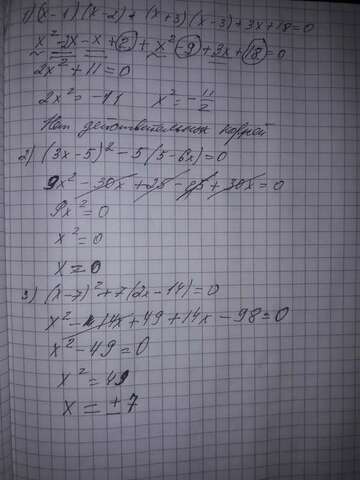 1) (x-1)(x-2)+(x+3)(x-3)+3x+18=0
x²-2x-x+2+x²-9+3x+18=0
2x²+11=0
2x²=-11 x²=-11/2
Нет действительных корней
2) (3x-5)²-5(5-6x)=0
9x²-30x+25-25+30x=0
9x²=0
x²=0
x=0
3) (x-7)²+7(2x-14)=0
x²-14x+49+14x-98=0
x²-49=0
x²=49
x=±7